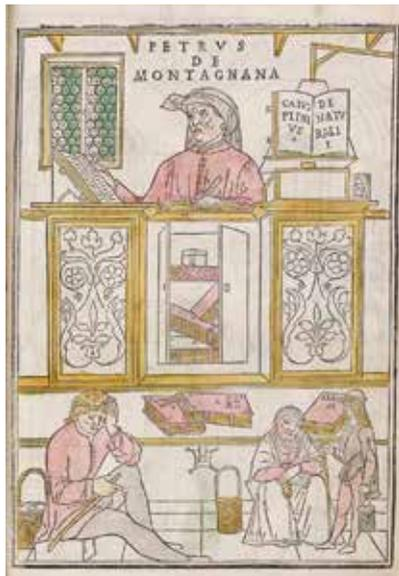 PETRVS
DE
MONTAGNANA
CAIVS
PLINI
VS
DE
NATV
RALI